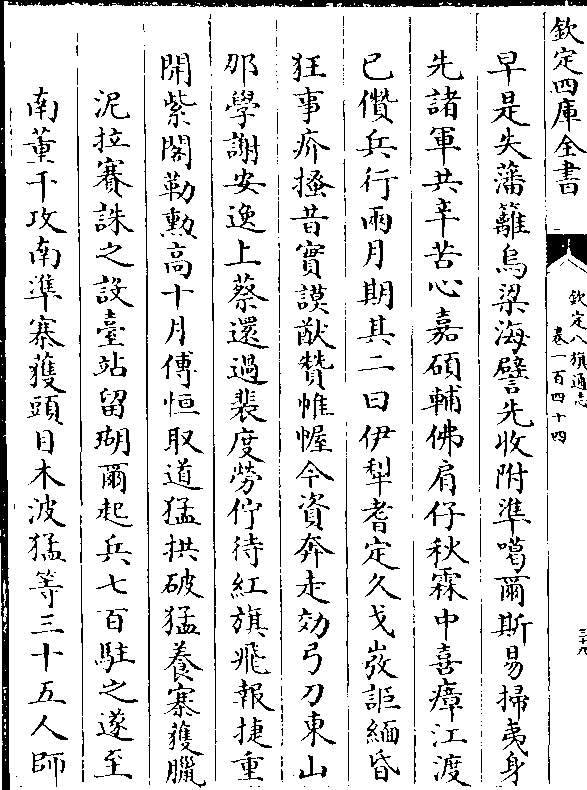 欽定四庫全書
欽定八旗通志
卷一百四十四
三十九
早是失藩籬烏梁海譬先收附準噶爾斯易掃夷身
先諸軍共辛苦心嘉碩輔佛肩仔秋霖中喜瘴江渡
已儹兵行兩月期其二曰伊犁耆定久戈㢮詎緬昏
狂事疥搔昔實謨猷贊帷幄今資奔走効弓刀東山
那學謝安逸上蔡還過裴度勞佇待紅旗飛報捷重
開紫閣勒勳高十月傅恒取道猛拱破猛養寨獲臘
泥拉賽誅之設臺站留瑚爾起兵七百駐之遂至
南董干攻南準寨獲頭目木波猛等三十五人師